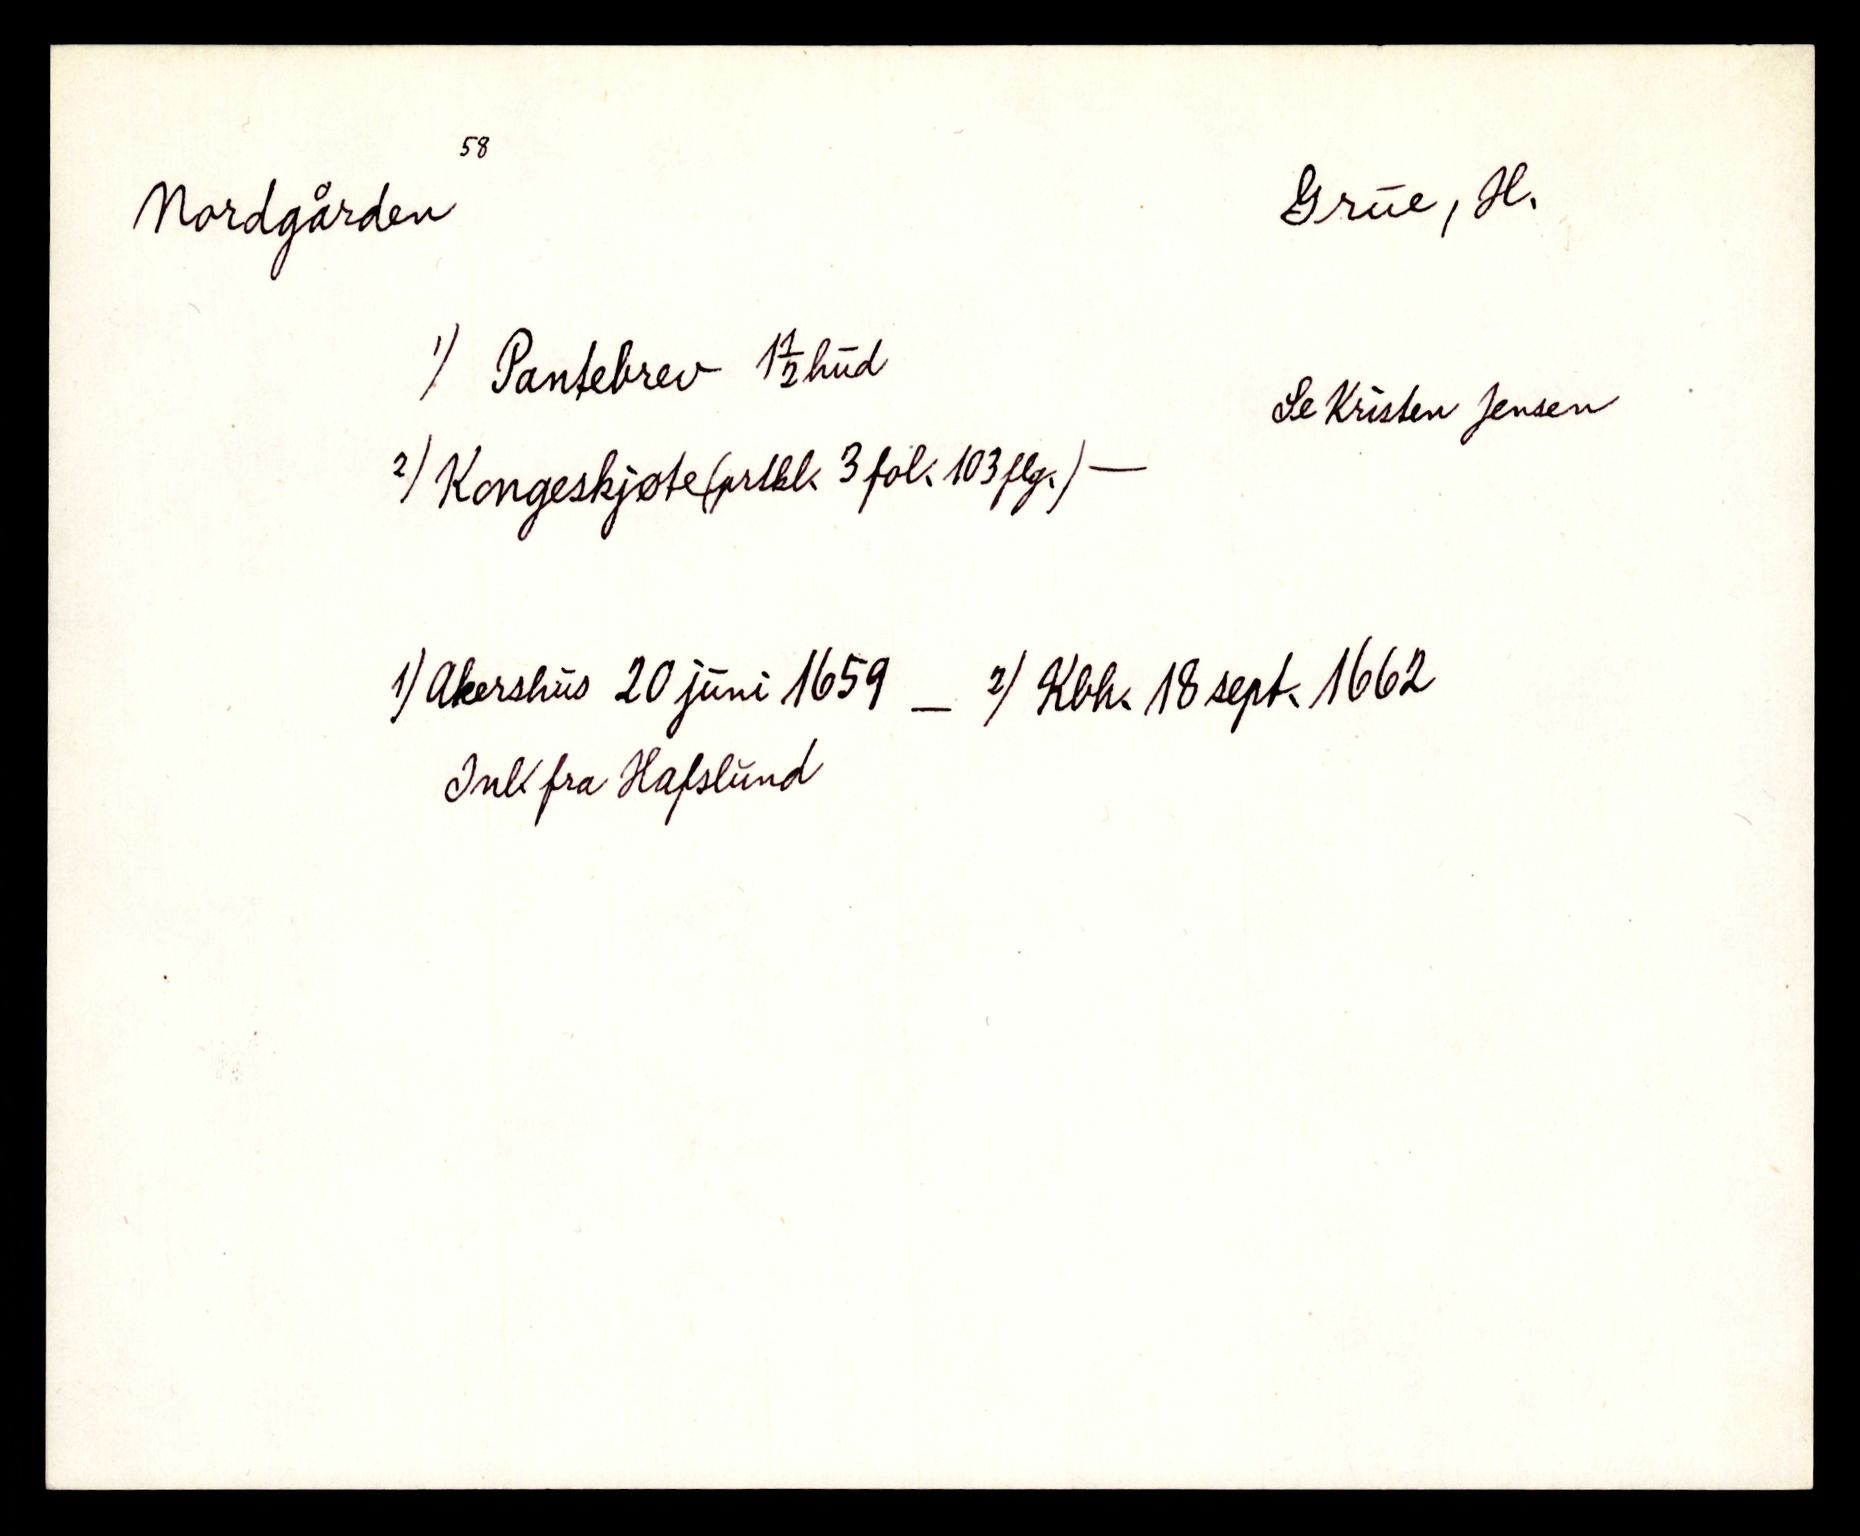 58
Nordgården
Grue, H.
1) Pantebrev 1 1/2 hud
Se Kristen Jensen
2) Kongeskjøte (prtkl. 3 fol. 103 flg.) —
1) Akershus 20 juni 1659 — 2) Kbh. 18 sept. 1662
Ink fra Hafslund